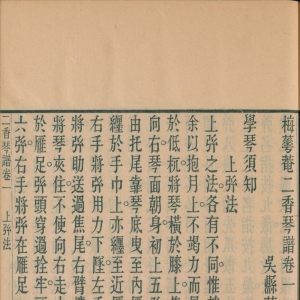 梅菴菴二香琴譜卷一
吳縣蔣
學琴須知
上弹法
上弹之法各有不同惟
余以抱月上不竭力而
於低杌將琴橫於膝上
向右琴面朝身初上五
由托尾靠琴底嶘嶘
纏於手巾上亦纏至近
右手將弹用力下墜左手
將弹助送過焦尾右臂
將琴夾住不使向右走
於雁足弹頭穿過拴牢
六弹右手將弹在雁足
二香琴譜卷一 上弹法